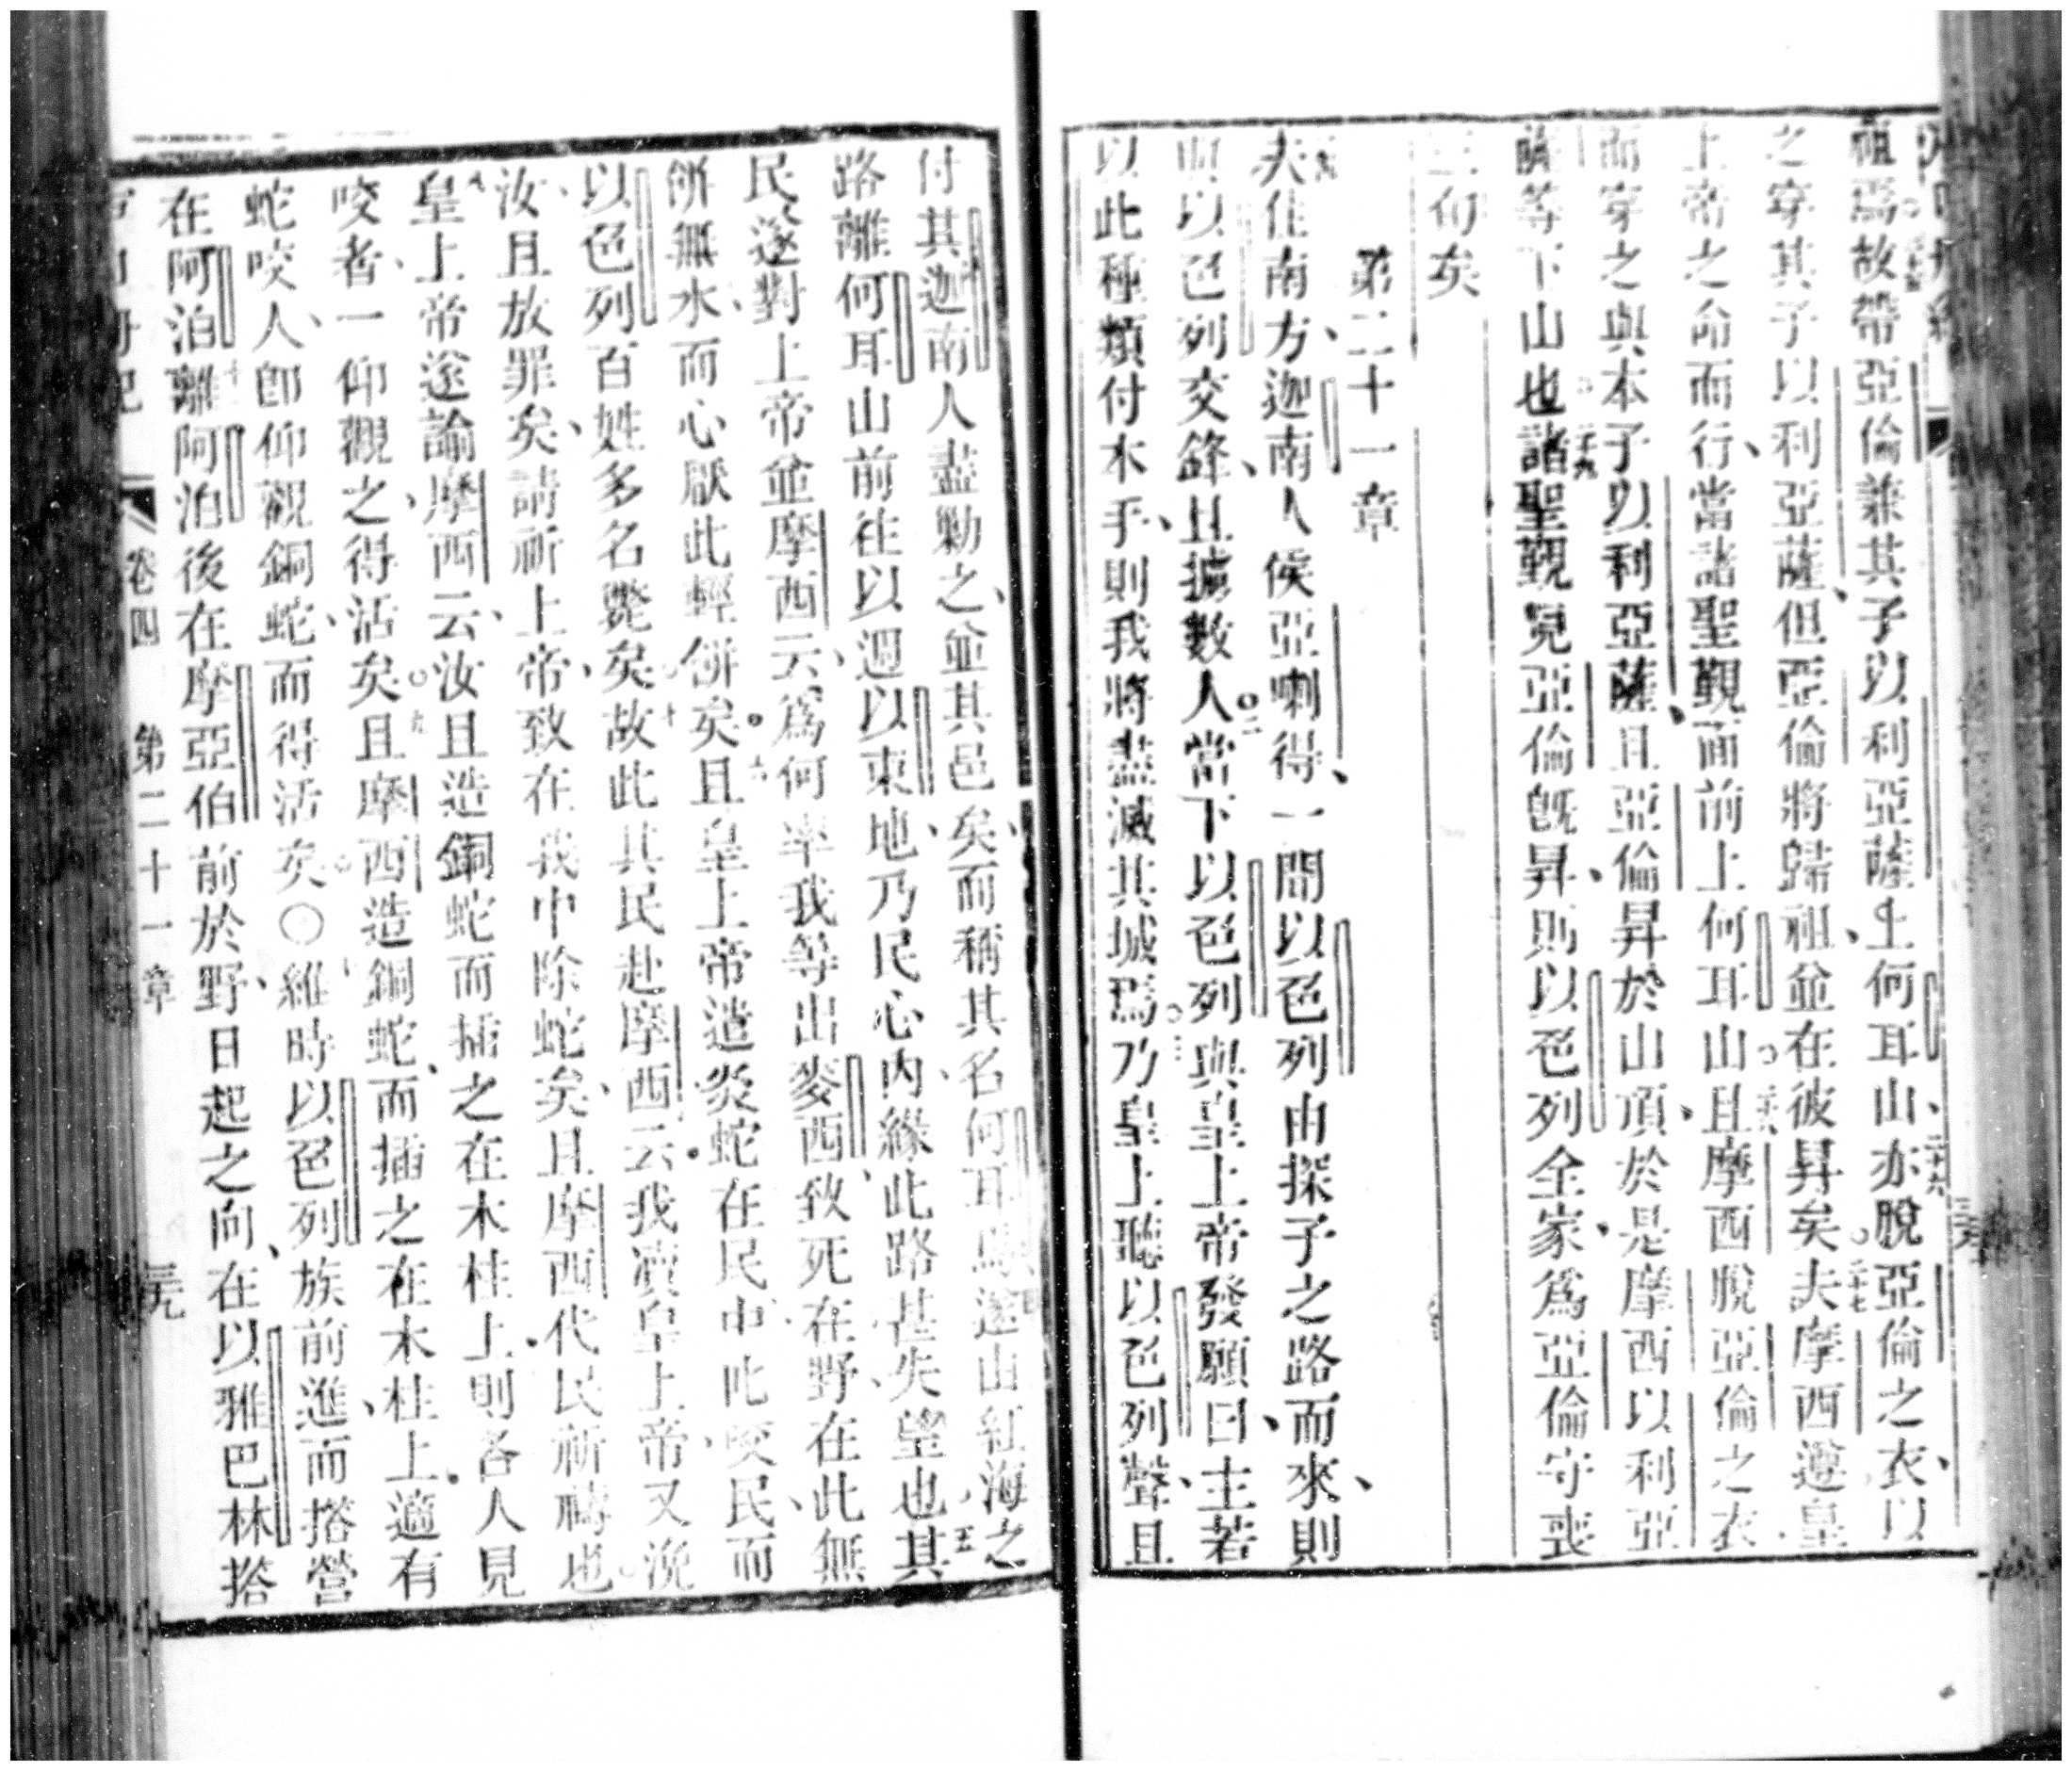 祖焉故帶亞倫兼其子以利亞薩上何耳山亦脫亞倫之衣以
之穿其子以利亞薩但亞倫將歸祖並在彼昇矣夫摩西遵皇
上帝之命而行當諸聖覲面前上何耳山且摩西脫亞倫之衣
而穿之與本子以利亞薩且亞倫昇於山頂於是摩西以利亞
薩等下山也諸聖覲見亞倫旣昇則以色列全家為亞倫守喪
三旬矣
第二十一章
夫住南方迦南人侯亞喇得一聞以色列由探子之路而來則
而以色列交鋒且擄數人當下以色列與皇上帝發願曰主若
以此種類付本手則我將盡滅其城焉乃皇上聽以色列聲且
付其迦南人盡勦之並其邑矣而稱其名何耳馬遂由紅海之
路離何耳山前往以週以東地乃民心內緣此路甚失望也其
民遂對上帝並摩西云為何率我等出麥西致死在野在此無
餅無水而心厭此輕餅矣且皇上帝遣炎蛇在民中叱咬民而
以色列百姓多名斃矣故此其民赴摩西云我瀆皇上帝又浼
汝且放罪矣請祈上帝致在我中除蛇矣且摩西代民祈禱也
皇上帝遂諭摩西云汝且造銅蛇而插之在木柱上則各人見
咬者一仰觀之得活矣且摩西造銅蛇而插之在木柱上適有
蛇咬人卽仰觀銅蛇而得活矣〇維時以色列族前進而搭營
在阿泊離阿泊後在摩亞伯前於野日起之向在以雅巴林搭
卷四 第二十一章 三九